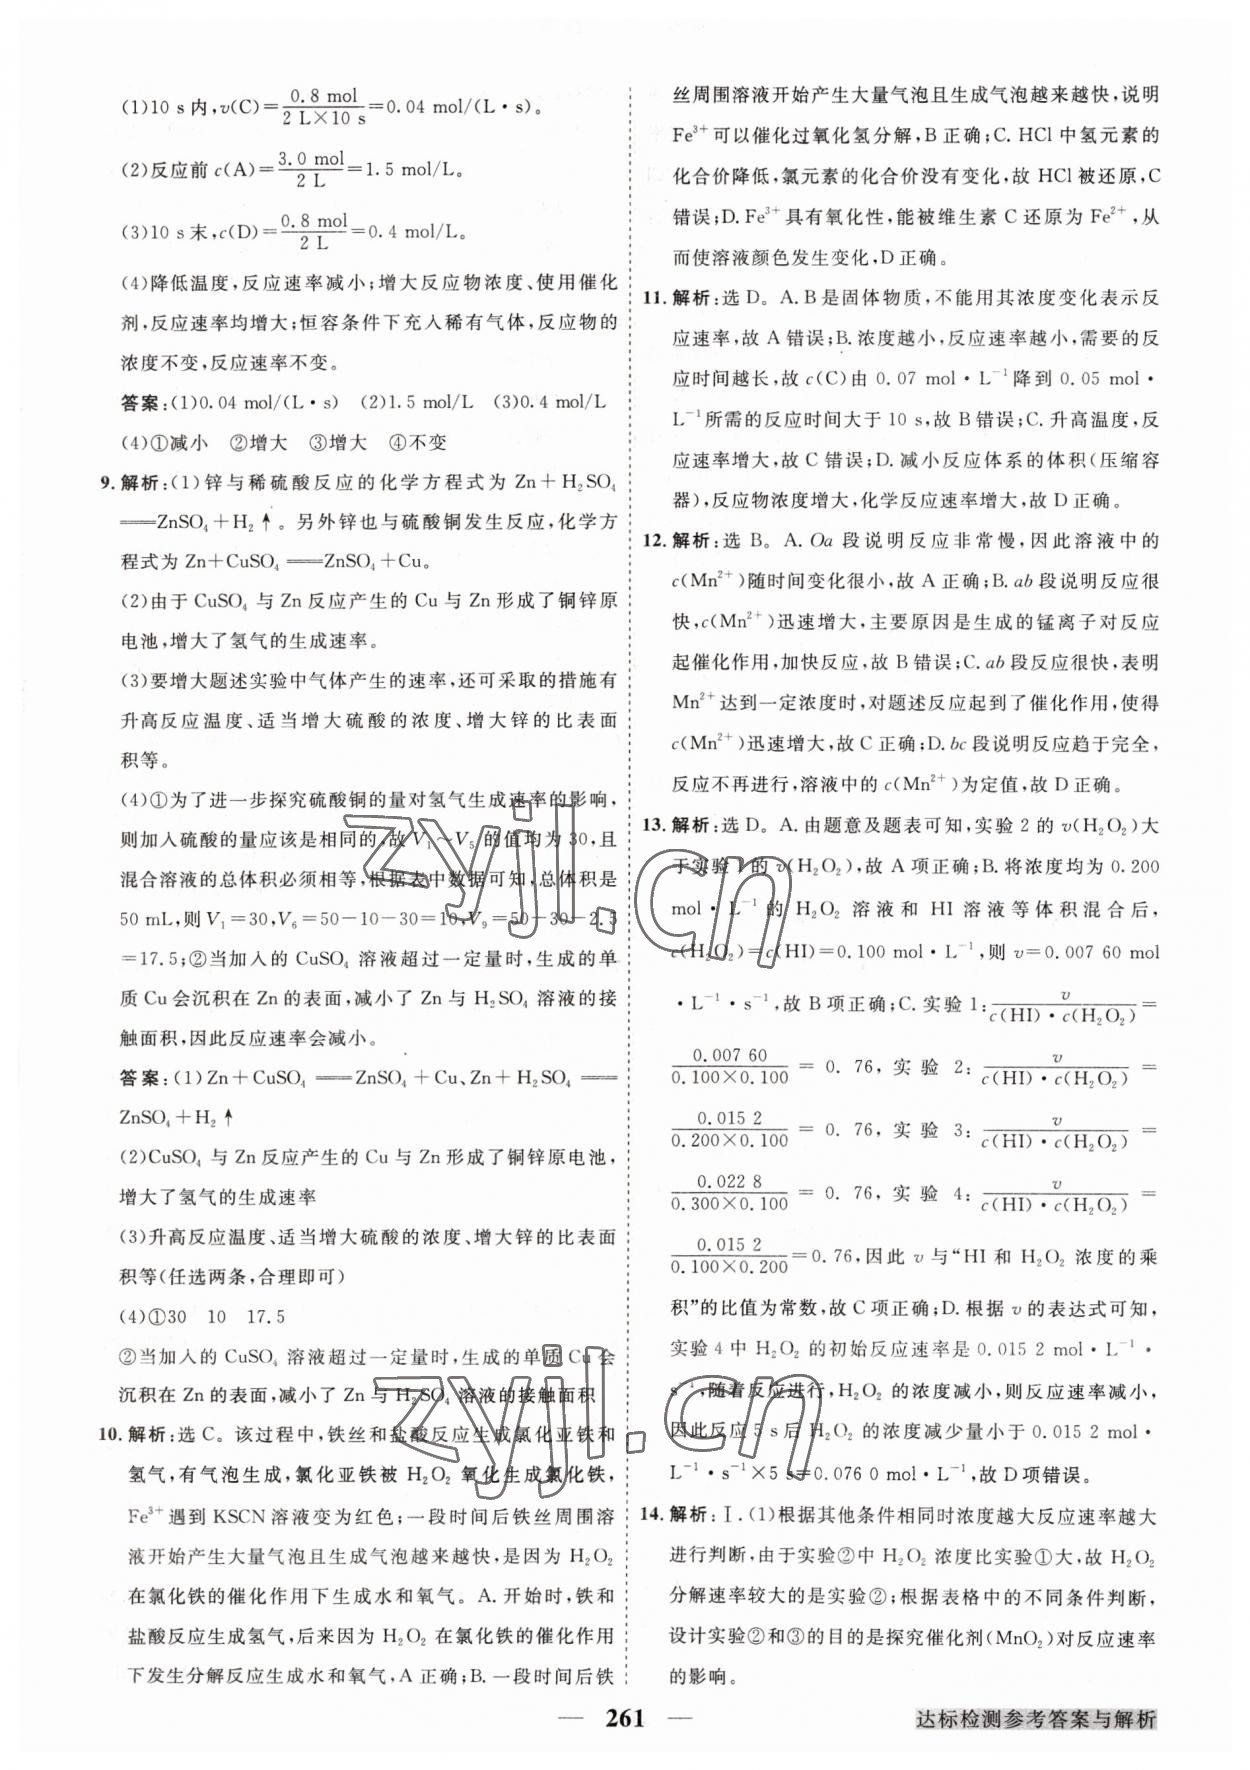 (1)10 s内,v(C)=0.8 mol/2 L×10 s=0.04 mol/(L·s)。
(2)反应前c(A)=3.0 mol/2 L=1.5 mol/L。
(3)10 s末,c(D)=0.8 mol/2 L=0.4 mol/L。
(4)降低温度,反应速率减小;增大反应物浓度、使用催化
剂,反应速率均增大;恒容条件下充入稀有气体,反应物的
浓度不变,反应速率不变。
答案:(1)0.04 mol/(L·s) (2)1.5 mol/L (3)0.4 mol/L
(4)①减小 ②增大 ③增大 ④不变
9.解析:(1)锌与稀硫酸反应的化学方程式为Zn+H₂SO₄
══ZnSO₄+H₂↑。另外锌也与硫酸铜发生反应,化学方
程式为Zn+CuSO₄══ZnSO₄+Cu。
(2)由于CuSO₄与Zn反应产生的Cu与Zn形成了铜锌原
电池,增大了氢气的生成速率。
(3)要增大题述实验中气体产生的速率,还可采取的措施有
升高反应温度、适当增大硫酸的浓度、增大锌的比表面
积等。
(4)①为了进一步探究硫酸铜的量对氢气生成速率的影响,
则加入硫酸的量应该是相同的,故V₁~V₅的值均为30,且
混合溶液的总体积必须相等,根据表中数据可知,总体积是
50 mL,则V₁=30,V₆=50-10-30=10,V₉=50-30-2.5
=17.5;②当加入的CuSO₄溶液超过一定量时,生成的单
质Cu会沉积在Zn的表面,减小了Zn与H₂SO₄溶液的接
触面积,因此反应速率会减小。
答案:(1)Zn+CuSO₄══ZnSO₄+Cu、Zn+H₂SO₄══
ZnSO₄+H₂↑
(2)CuSO₄与Zn反应产生的Cu与Zn形成了铜锌原电池,
增大了氢气的生成速率
(3)升高反应温度、适当增大硫酸的浓度、增大锌的比表面
积等(任选两条,合理即可)
(4)①30 10 17.5
②当加入的CuSO₄溶液超过一定量时,生成的单质Cu会
沉积在Zn的表面,减小了Zn与H₂SO₄溶液的接触面积
10.解析:选C。该过程中,铁丝和盐酸反应生成氯化亚铁和
氢气,有气泡生成,氯化亚铁被H₂O₂氧化生成氯化铁,
Fe³⁺遇到KSCN溶液变为红色;一段时间后铁丝周围溶
液开始产生大量气泡且生成气泡越来越快,是因为H₂O₂
在氯化铁的催化作用下生成水和氧气。A.开始时,铁和
盐酸反应生成氢气,后来因为H₂O₂在氯化铁的催化作用
下发生分解反应生成水和氧气,A正确;B.一段时间后铁
丝周围溶液开始产生大量气泡且生成气泡越来越快,说明
Fe³⁺可以催化过氧化氢分解,B正确;C.HCl中氢元素的
化合价降低,氯元素的化合价没有变化,故HCl被还原,C
错误;D.Fe³⁺具有氧化性,能被维生素C还原为Fe²⁺,从
而使溶液颜色发生变化,D正确。
11.解析:选D。A.B是固体物质,不能用其浓度变化表示反
应速率,故A错误;B.浓度越小,反应速率越小,需要的反
应时间越长,故c(C)由0.07 mol·L⁻¹降到0.05 mol·
L⁻¹所需的反应时间大于10 s,故B错误;C.升高温度,反
应速率增大,故C错误;D.减小反应体系的体积(压缩容
器),反应物浓度增大,化学反应速率增大,故D正确。
12.解析:选B。A.Oa段说明反应非常慢,因此溶液中的
c(Mn²⁺)随时间变化很小,故A正确;B.ab段说明反应很
快,c(Mn²⁺)迅速增大,主要原因是生成的锰离子对反应
起催化作用,加快反应,故B错误;C.ab段反应很快,表明
Mn²⁺达到一定浓度时,对题述反应起到了催化作用,使得
c(Mn²⁺)迅速增大,故C正确;D.bc段说明反应趋于完全,
反应不再进行,溶液中的c(Mn²⁺)为定值,故D正确。
13.解析:选D。A.由题意及题表可知,实验2的v(H₂O₂)大
于实验1的v(H₂O₂),故A项正确;B.将浓度均为0.200
mol·L⁻¹的H₂O₂溶液和HI溶液等体积混合后,
c(H₂O₂)=c(HI)=0.100 mol·L⁻¹,则v=0.007 60 mol
·L⁻¹·s⁻¹,故B项正确;C.实验1:v/c(HI)·c(H₂O₂)=
0.007 60/0.100×0.100=0.76,实验2:v/c(HI)·c(H₂O₂)=
0.015 2/0.200×0.100=0.76,实验3:v/c(HI)·c(H₂O₂)=
0.022 8/0.300×0.100=0.76,实验4:v/c(HI)·c(H₂O₂)=
0.015 2/0.100×0.200=0.76,因此v与“HI和H₂O₂浓度的乘
积”的比值为常数,故C项正确;D.根据v的表达式可知,
实验4中H₂O₂的初始反应速率是0.015 2 mol·L⁻¹·
s⁻¹,随着反应进行,H₂O₂的浓度减小,则反应速率减小,
因此反应5 s后H₂O₂的浓度减少量小于0.015 2 mol·
L⁻¹·s⁻¹×5 s=0.076 0 mol·L⁻¹,故D项错误。
14.解析:Ⅰ.(1)根据其他条件相同时浓度越大反应速率越大
进行判断,由于实验②中H₂O₂浓度比实验①大,故H₂O₂
分解速率较大的是实验②;根据表格中的不同条件判断,
设计实验②和③的目的是探究催化剂(MnO₂)对反应速率
的影响。
zyjl.cn
zyjl.cn
— 261 —
达标检测参考答案与解析